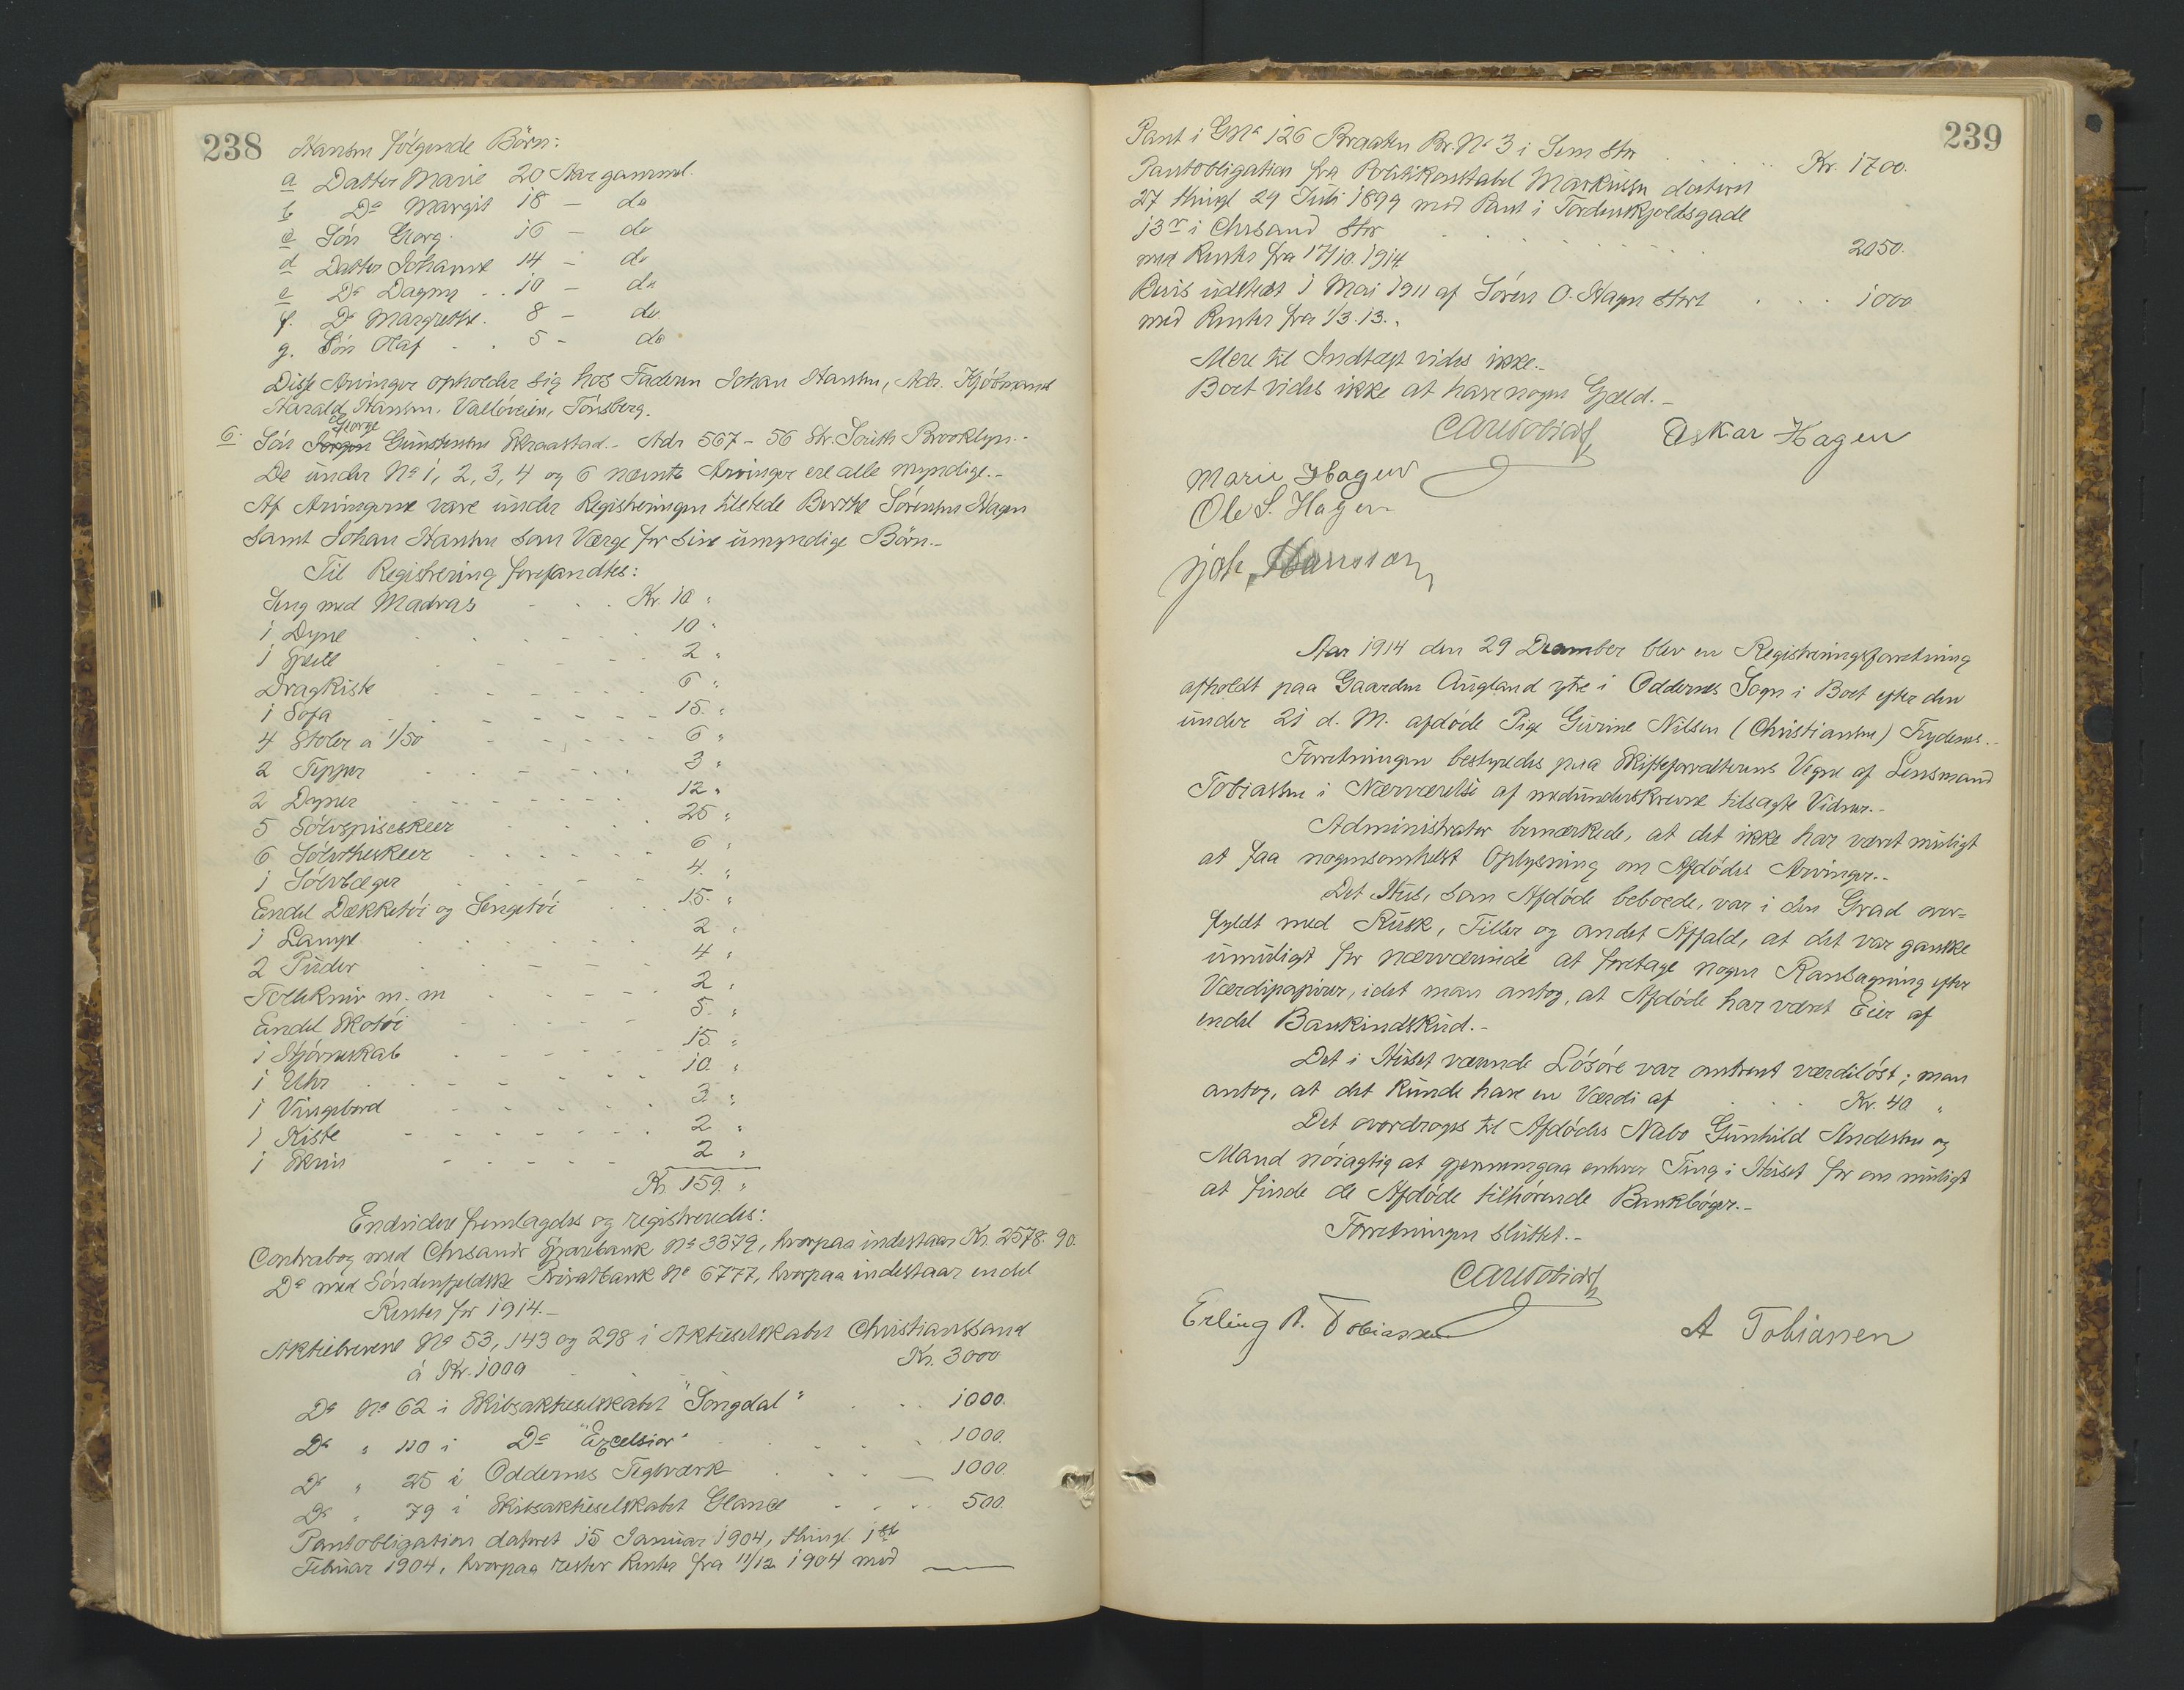 238
Hansen følgende Børn:
a Datter Marie 20 Aar gammel.
b Do Margit 18 - do
c Søn Georg. 16 - do
d Datter Johanne 14 - do
e Do Dagny . . 10 - do
f. Do Margrethe. 8 - do
g. Søn Olaf - . 5 - do
Disse Arvinger opholder sig hos Faderen Johan Hansen, Adr. Kjøbmand
Harald Hansen, Valløveien, Tønsberg.
6. Søn George Gundersen Skraastad. - Adr 567 - 56 Str. South Brooklyn. -
De under No 1, 2, 3, 4 og 6 nævnte Arvinger ere alle myndige. -
Af Arvingerne vare under Registreringen tilstede Berthe Sørensen Hagen
samt Johan Hansen som Værge for sine umyndige Børn. -
Til Registrering forefandtes:
Seng med Madras . . . Kr. 10 "
1 Dyne 10 "
1 Speil 2 "
Dragkiste 6 "
1 Sofa 15 "
4 Stoler a 1/50 6 "
2 Tepper 3 "
2 Dyner 12 "
5 Sølvspiseskeer 25 "
6 Sølvtheskeer 6 "
1 Sølvbæger 4. "
Endel Dækketøi og Sengetøi 15. "
1 Lampe 2 "
2 Puder 4 "
Tollekniv m. m 2 "
Endel Skotøi 5. "
1 Hjørneskab 15. "
1 Uhr 10 "
1 Vingebord 3 "
1 Kiste 2 "
1 Skrin 2 "
Kr. 159. "
Endvidere fremlagdes og registreredes:
Contrabog med Chrsands Sparebank No 3379, hvorpaa indestaar Kr. 2578. 90.
Do med Søndenfjeldske Privatbank No 6777, hvorpaa indestaar endel
Renter for 1914. -
Aktiebrevene No 53, 143 og 298 i Aktieselskabet Christianssand
á Kr. 1000 Kr. 3000
Do No 62 i Skibsaktieselskabet "Songdal" 1000.
Do " 110 i Do "Excelsior" 1000.
Do " 25 i Oddernes Teglværk 1000.
Do " 79 i Skibsaktieselskabet Glance 500.
Pantobligation dateret 15 Januar 1904, thingl. 1ste
Februar 1904, hvorpaa rester Renter fra 11/12 1904 med
239
Pant i GNo 126 Braaten Br. No 3 i Sem Stor Kr. 1700.
Pantobligation fra Politikonstabel Markussen dateret
27 thingl 29 Juli 1899 med Pant i Tordenskjoldsgade
13 i Chrsand Stor 2050.
med Renter fra 17/10. 1914.
Bevis udstedt 1 Mai 1911 af Søren O. Hagen stort . . . 1000
med Renter fra 1/3. 13. .
Mere til Indtægt vides ikke. -
Boet vides ikke at have nogen Gjæld. -
Oskar Hagen
Marie Hagen
Ole S. Hagen
Joh. Hansson
Aar 1914 den 29 December blev en Registreringsforretning
afholdt paa Gaarden Augland ytre i Oddernes Sogn i Boet efter den
under 21 d. M. afdøde Pige Gurine Nilsen (Christiansen) Frydenes. -
Forretningen bestyredes paa Skifteforvalterens Vegne af Lensmand
Tobiassen i Nærværelse af medunderskrevne tilsagte Vidner. -
Administrator bemærkede, at det ikke har været muligt
at faa nogensomhelst Oplysning om Afdødes Arvinger. -
Det Hus, som Afdøde beboede, var i den Grad over=
fyldt med Rusk, Filler og andet Affald, at det var ganske
umuligt for nærværende at foretage nogen Ransagning efter
Værdipapirer, idet man antog, at Afdøde har været Eier af
endel Bankindskud. -
Det i Huset værende Løsøre var omtrent værdiløst; man
antog, at det kunde have en Værdi af . . . Kr. 40 "
Det overdroges til Afdødes Nabo Gunhild Andersen og
Mand nøiagtig at gjennemgaa enhver Ting i Huset for om muligt
at finde de Afdøde tilhørende Bankbøger. -
Forretningen sluttet. -
Erling A. Tobiassen
A Tobiassen